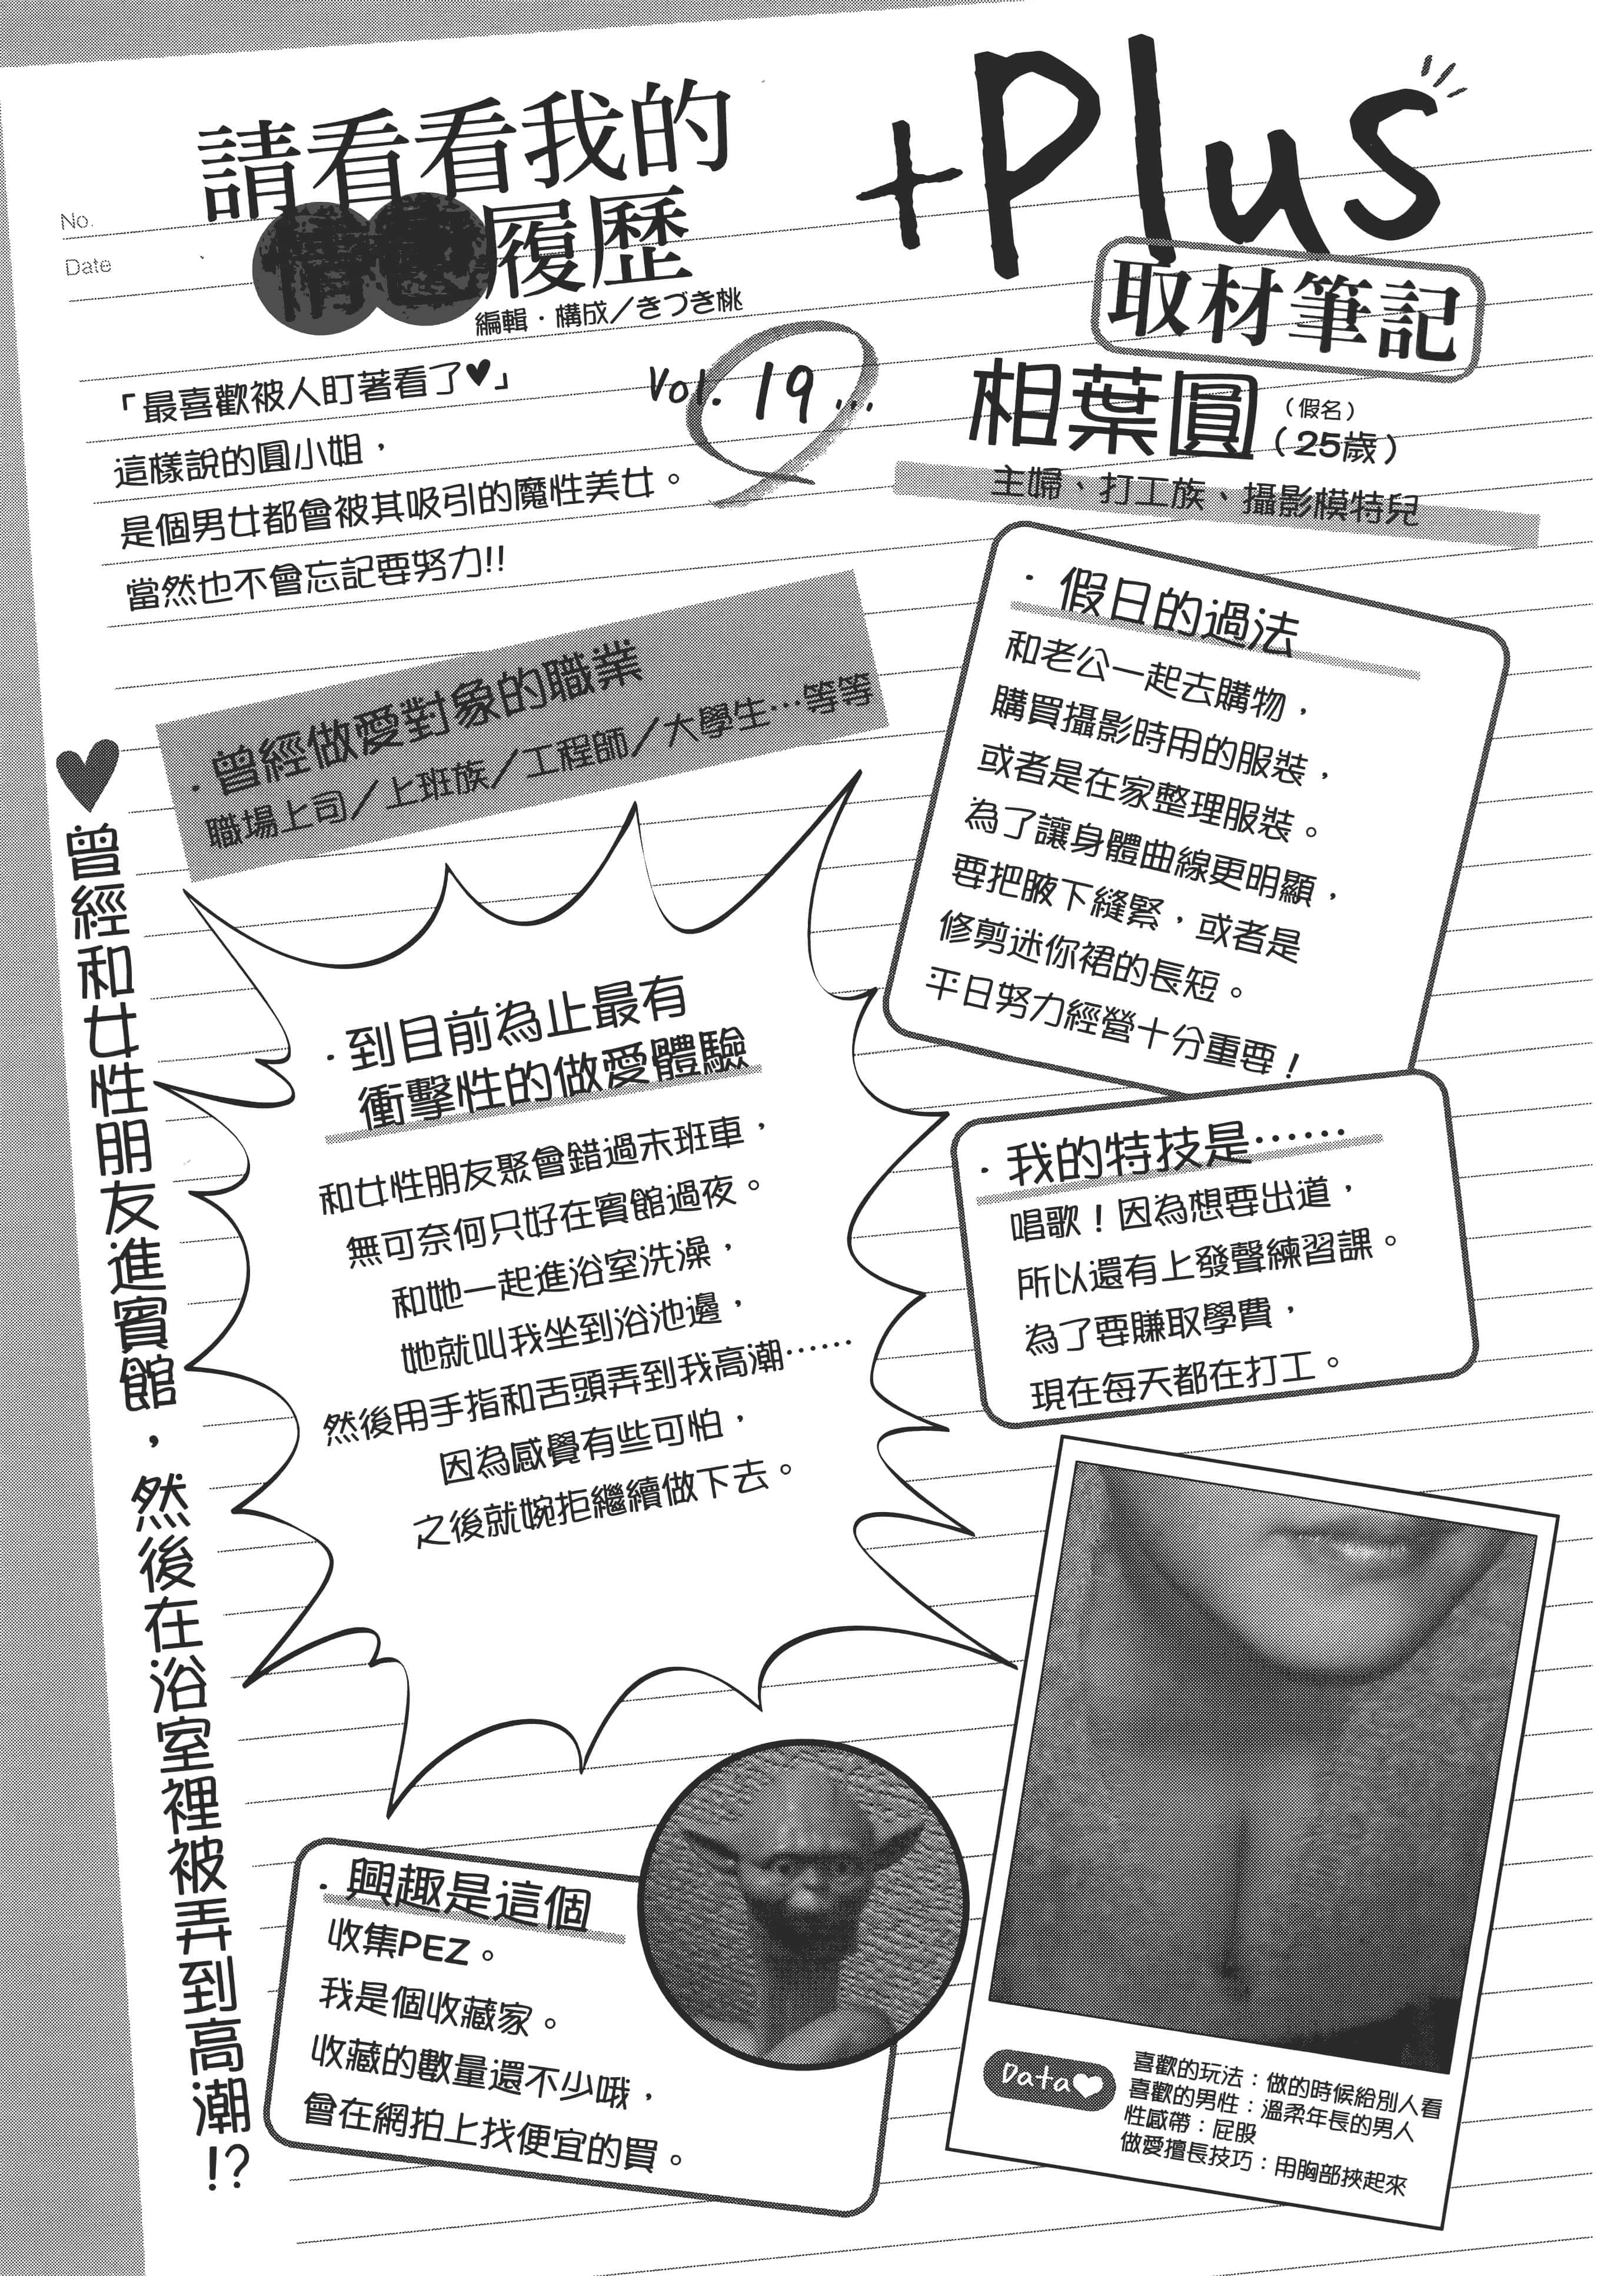 No.
Date
請看看我的
情色履歷
編輯・構成／きづき桃
+Plus
取材筆記
Vol. 19...
相葉圓
（假名）
（25歲）
主婦、打工族、攝影模特兒
「最喜歡被人盯著看了♥」
這樣說的圓小姐，
是個男女都會被其吸引的魔性美女。
當然也不會忘記要努力!!
・曾經做愛對象的職業
職場上司／上班族／工程師／大學生…等等
・假日的過法
和老公一起去購物，
購買攝影時用的服裝，
或者是在家整理服裝。
為了讓身體曲線更明顯，
要把腋下縫緊，或者是
修剪迷你裙的長短。
平日努力經營十分重要！
♥曾經和女性朋友進賓館，然後在浴室裡被弄到高潮!?
・到目前為止最有
衝擊性的做愛體驗
和女性朋友聚會錯過末班車，
無可奈何只好在賓館過夜。
和她一起進浴室洗澡，
她就叫我坐到浴池邊，
然後用手指和舌頭弄到我高潮……
因為感覺有些可怕，
之後就婉拒繼續做下去。
・我的特技是……
唱歌！因為想要出道，
所以還有上發聲練習課。
為了要賺取學費，
現在每天都在打工。
・興趣是這個
收集PEZ。
我是個收藏家。
收藏的數量還不少哦，
會在網拍上找便宜的買。
Data♥
喜歡的玩法：做的時候給別人看
喜歡的男性：溫柔年長的男人
性感帶：屁股
做愛擅長技巧：用胸部挾起來